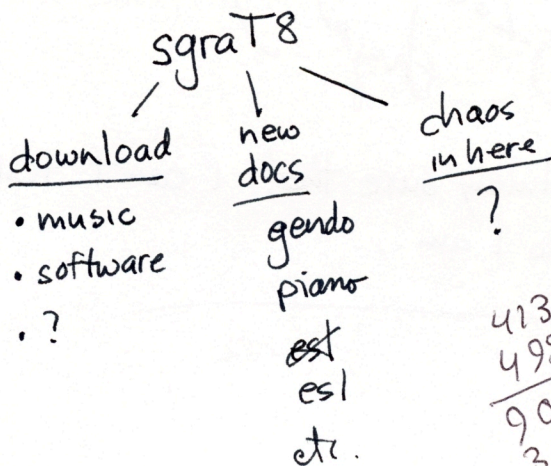 sgraT8
download
• music
• software
• ?
new
docs
gendo
piano
est
esl
etc.
chaos
in here
?
413
498
90
3